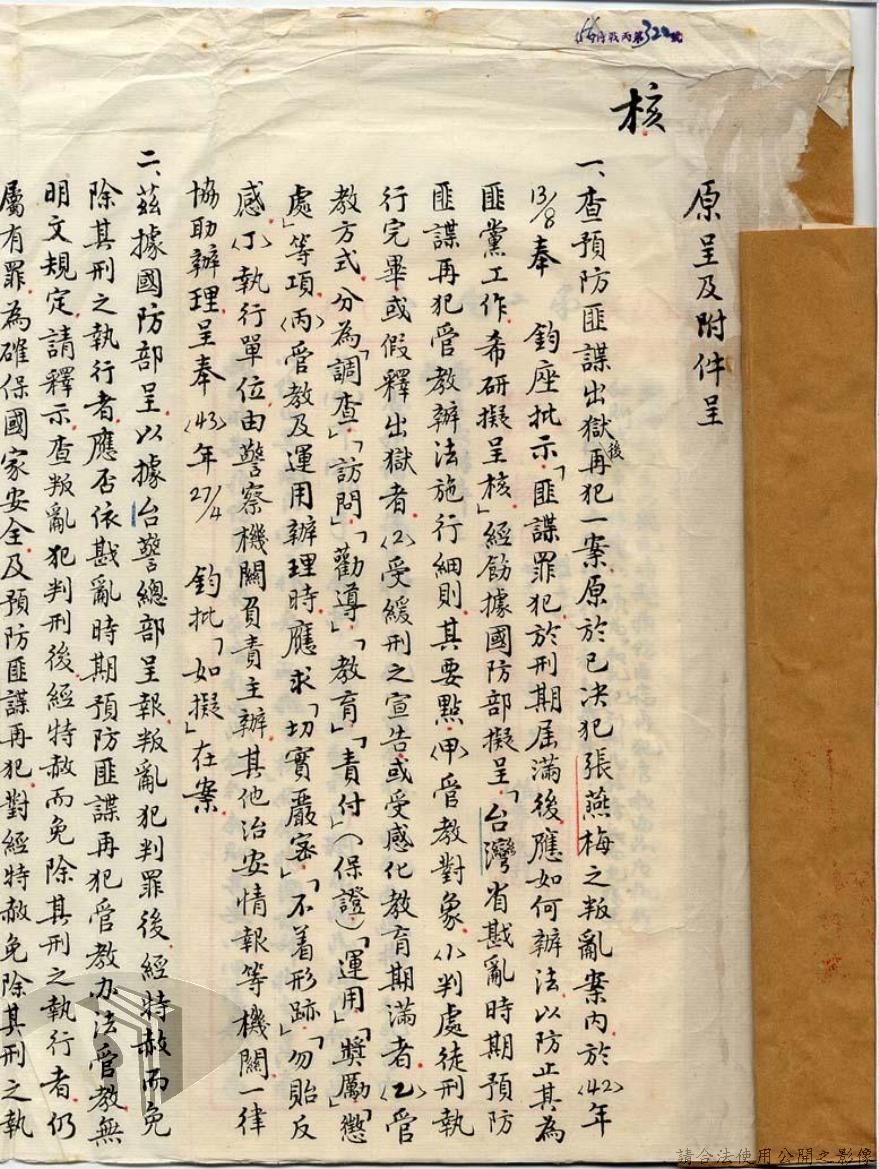 侍戰丙第322號
核
原呈及附件呈
一、查預防匪諜出獄後再犯一案、原於已決犯張燕梅之叛亂案內、於〈42〉年
13/8奉　鈞座批示「匪諜罪犯於刑期屆滿後、應如何辦法、以防止其為
匪黨工作、希研擬呈核」經飭據國防部擬呈「台灣省戡亂時期預防
匪諜再犯管教辦法施行細則、其要點〈甲〉管教對象、〈1〉判處徒刑執
行完畢或假釋出獄者、〈2〉受緩刑之宣告或受感化教育期滿者、〈乙〉管
教方式、分為「調查」「訪問」「勸導」「教育」「責付」（保證）「運用」「獎勵」「懲
處」等項、〈丙〉管教及運用辦理時、應求「切實嚴密」「不着形跡」「勿貽反
感、〈丁〉執行單位由警察機關負責主辦、其他治安情報等機關一律
協助辦理、呈奉〈43〉年27/4　鈞批「如擬」在案、
二、茲據國防部呈、以據台警總部呈報、叛亂犯判罪後、經特赦而免
除其刑之執行者、應否依戡亂時期預防匪諜再犯管教办法管教、無
明文規定、請釋示、查叛亂犯判刑後、經特赦而免除其刑之執行者、仍
屬有罪、為確保國家安全、及預防匪諜再犯、對經特赦免除其刑之執
請合法使用公開之影像